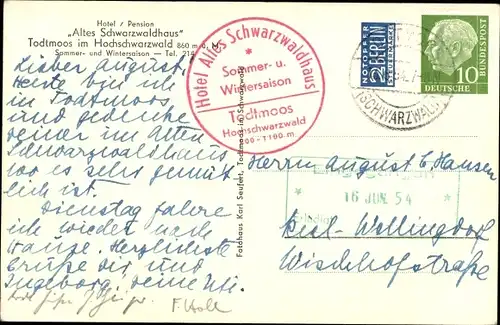 Hotel / Pension
„Altes Schwarzwaldhaus"
Todtmoos im Hochschwarzwald 860 m ü. M.
Sommer- und Wintersaison — Tel. 214
Lieber August!
Heute bin ich
in Todtmoos
und gedenke
deiner im Alten
Schwarzwaldhaus
wo es sehr gemüt
lich ist.
Dienstag fahre
ich wieder nach
Herzlichste
Grüße dir und
Ingeborg, deine
F. Holl
Hotel Altes Schwarzwaldhaus
Sommer- u.
Wintersaison
Todtmoos
Hochschwarzwald
800-1100 m
Fotohaus Karl Seufert, Todtmoos-Schwarzwald
NOTOPFER
2 BERLIN
STEUERMARKE
DEUTSCHE
BUNDESPOST
10
(SCHWARZWALD)
Herrn August C. Hansen
16 JUN. 54
Kiel-Wellingdorf
Wischhofstraße